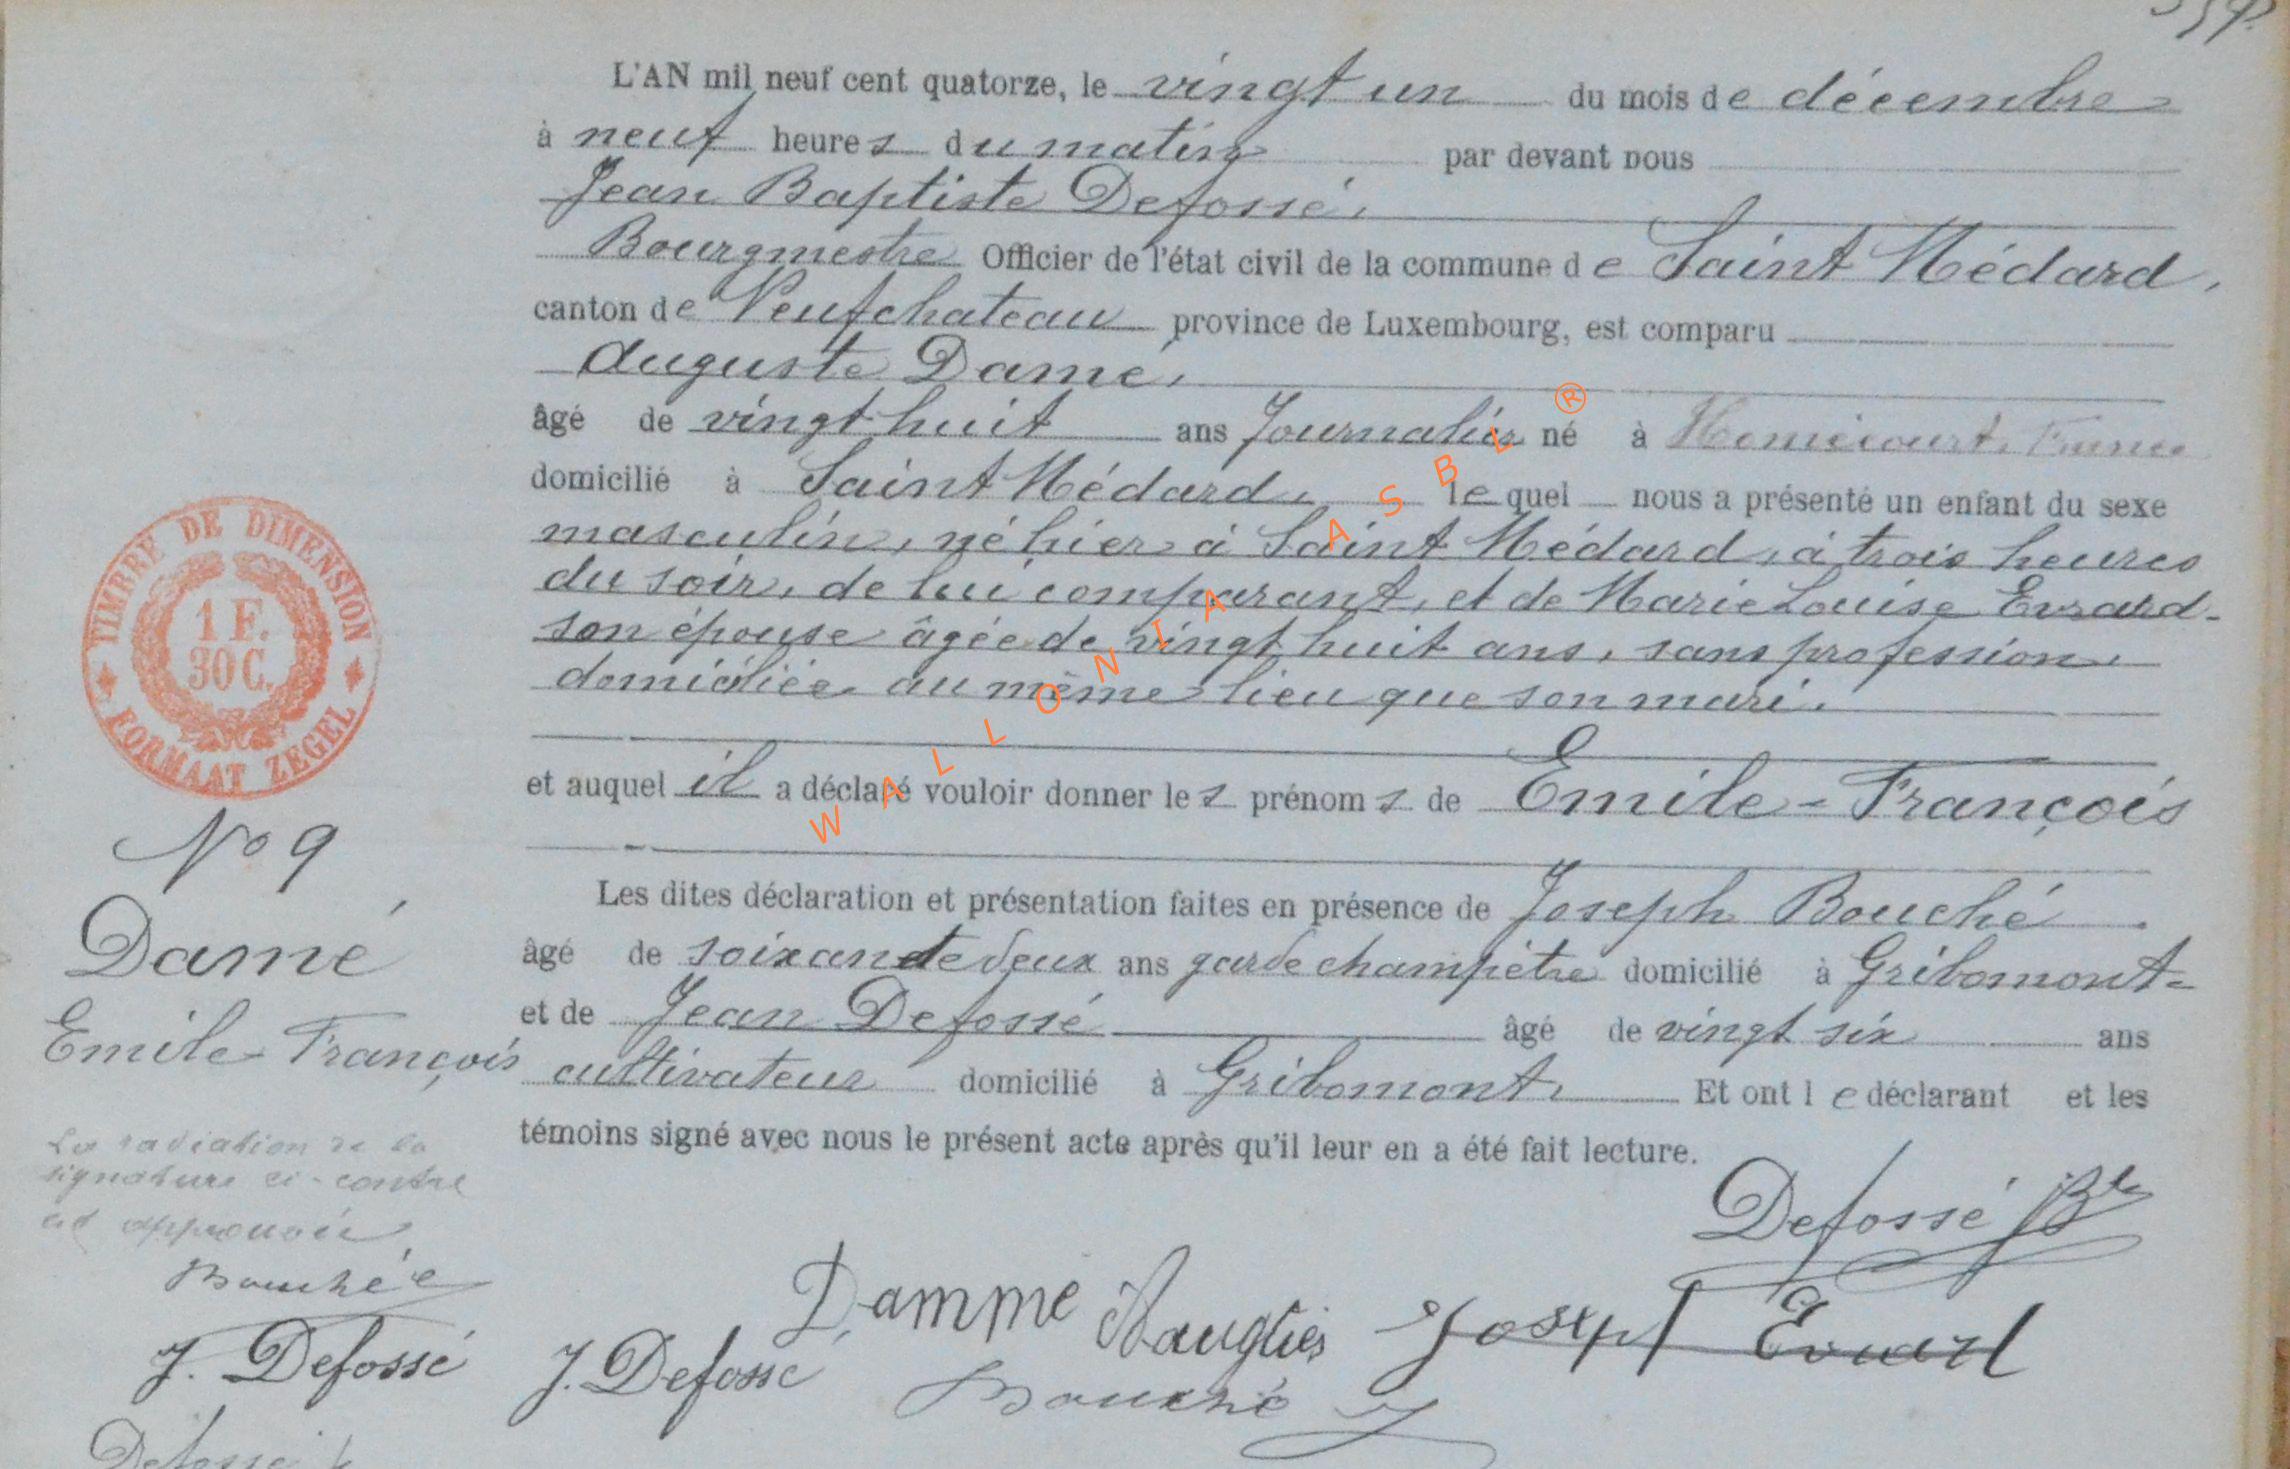 L'AN mil neuf cent quatorze, le vingt un du mois de décembre
à neuf heures du matin par devant nous
Jean Baptiste Defossé,
Bourgmestre Officier de l'état civil de la commune de Saint Médard,
canton de Neufchateau province de Luxembourg, est comparu
Auguste Damé,
âgé de vingt huit ans Journalier né à Homécourt, France
domicilié à Saint Médard, lequel nous a présenté un enfant du sexe
masculin, né hier à Saint Médard, à trois heures
du soir, de lui comparant, et de Marie Louise Evrard
son épouse âgée de vingt huit ans, sans profession,
domiciliée au même lieu que son mari.
et auquel il a déclaré vouloir donner les prénoms de Emile-François
Les dites déclaration et présentation faites en présence de Joseph Bouché
âgé de soixante deux ans garde champêtre domicilié à Gribomont
et de Jean Defossé âgé de vingt six ans
cultivateur domicilié à Gribomont, Et ont le déclarant et les
témoins signé avec nous le présent acte après qu'il leur en a été fait lecture.
TIMBRE DE DIMENSION
1 F.
30 C.
FORMAAT ZEGEL
No 9
Damé
Emile François
La radiation de la
signature ci-contre
est approuvée
Bouché
J. Defossé
Defossé
Defossé JB
Damme Joseph Evarl
J. Defossé Bouché J
WALLONIA ASBL ®